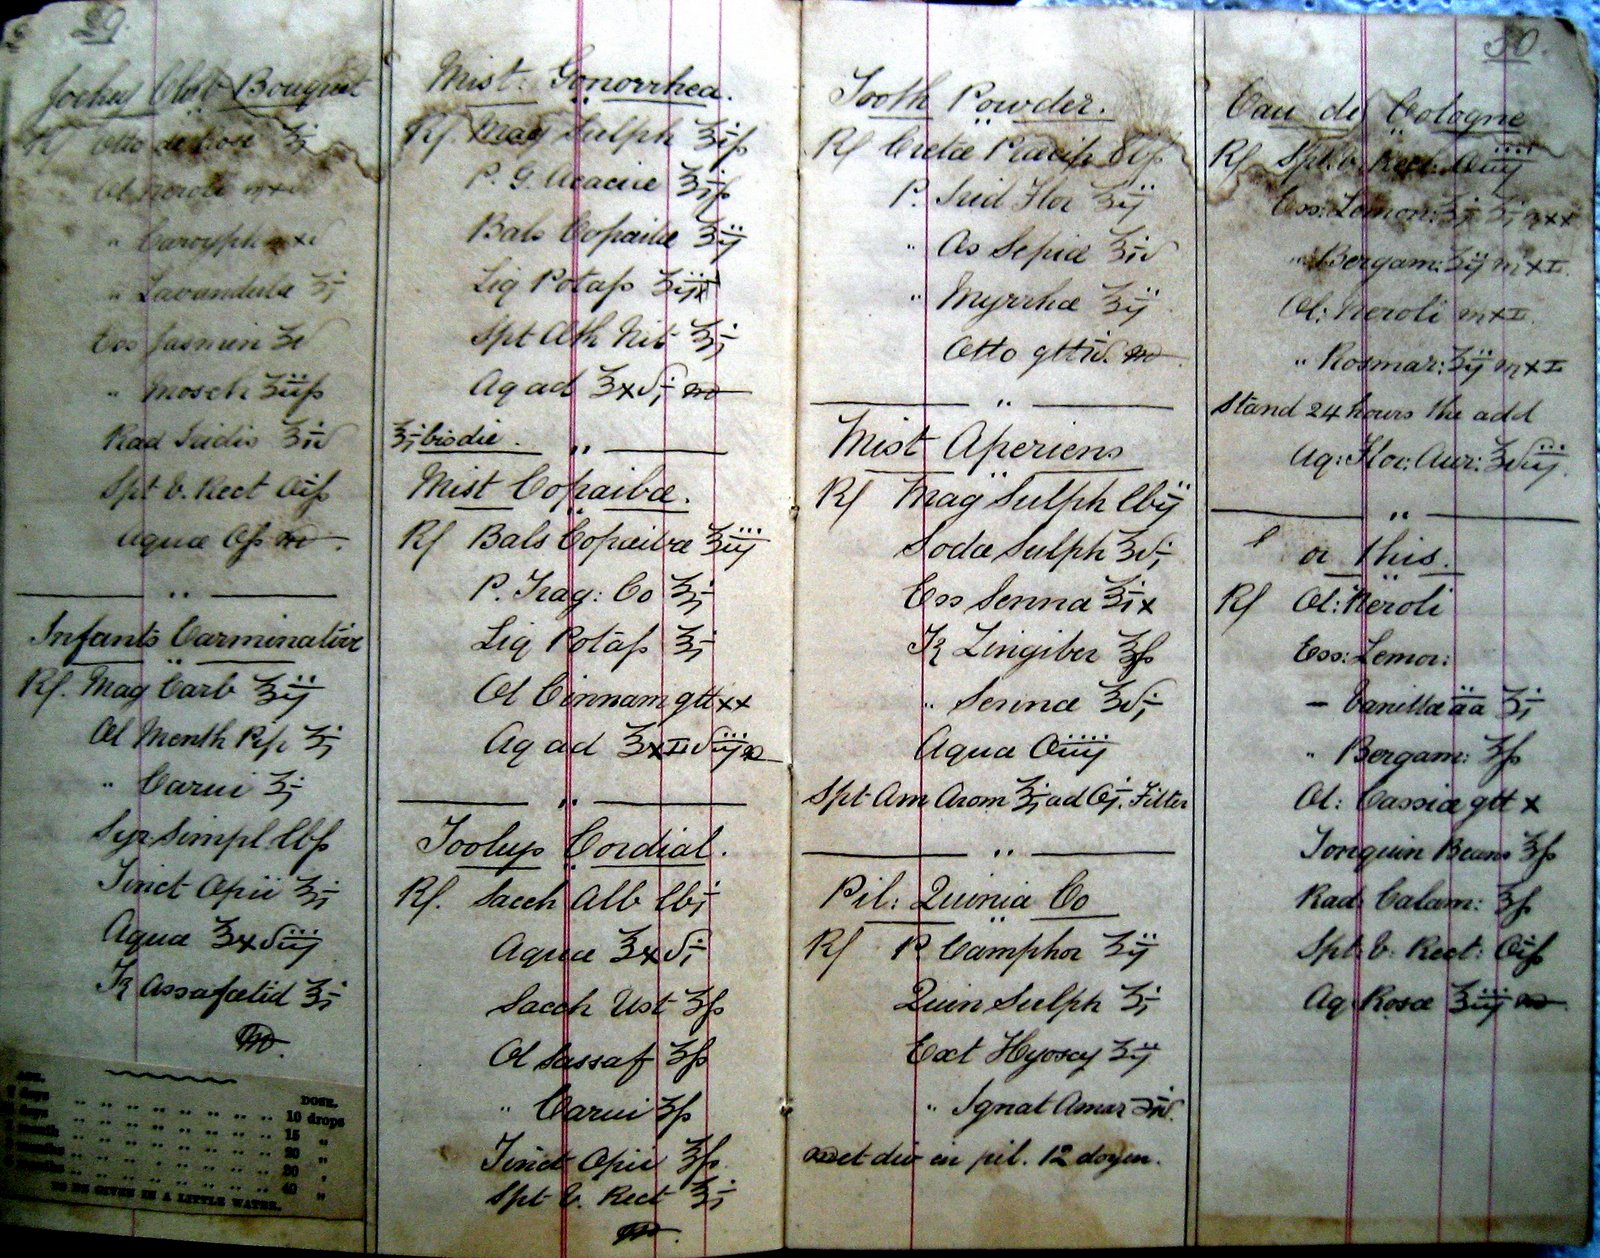 29.
Jockey Club Bouquet
Rf Otto de Rose ʒj
Ol Neroli
" Caroyph
" Lavandula ʒj
Ess Jasmin
" Mosch ʒijſs
Rad Iridis ʒiv
Spt V. Rect Oiſs
Aquae Oſs m.
"
Infants Carminative
Rf. Mag Carb ʒij
Ol Menth Pip ʒj
" Carui ʒj
Syr Simpl lbſs
Tinct Opii ʒj
Aqua ʒxviij
Tr Assafœtid ʒj
m.
AGE. DOSE.
days 10 drops
days 15 "
month 20 "
months 30 "
months 40 "
TO BE GIVEN IN A LITTLE WATER.
Mist. Gonorrhea.
Rf. Mag Sulph ʒiſs
P. G. Acaciæ ʒjſs
Bals Copaibæ ʒij
Liq Potaſs
Spt Æth Nit ʒj
Aq ad ʒxvj m
ʒj bis die. "
Mist Copaibæ.
Rf Bals Copaibæ ʒiij
P. Trag: Co ʒj
Liq Potaſs ʒj
Ol Cinnam gtt xx
Aq ad
"
Toolups Cordial.
Rf. Sacch Alb lbj
Aquæ ʒxvj
Sacch Ust ʒſs
Ol Sassaf ʒſs
" Carui ʒſs
Tinct Opii ʒſs.
Spt V. Rect ʒj
m.
30.
Tooth Powder.
Rf Cretæ Precip lbſs
P. Irid Flor ʒij
" Os Sepia ʒiv
" Myrrhæ ʒij
Otto gtt iv. m
"
Mist Aperiens
Rf Mag Sulph lbij
Soda Sulph ʒvj
Ess Senna ʒix
Tr Zingiber ʒſs
" Senna ʒvj
Aqua Oiiij
Spt Am Arom ʒj ad Cj. Filter
"
Pil: Quinia Co
Rf P. Camphor ʒij
Quin Sulph ʒj
Ext Hyoscy ʒij
" Ignat Amar ʒiv.
m et div in pil. 12 dozen.
Eau de Cologne
Rf Spt. V. Rect. Oiiij
Ess: Lemon: ʒj ʒj mxx
" Bergam: ʒij mxII.
Ol: Neroli mxII.
" Rosmar: ʒij mxII
Stand 24 hours the add
Aq: Flor: Aur: ʒviij.
"
or this.
Rf Ol: Neroli
Ess: Lemon:
— Vanillæ āā ʒj
" Bergam: ʒſs
Ol: Cassiæ gtt x
Tonquin Beans ʒſs
Rad. Calam: ʒſs
Spt: V. Rect: Oiſs
Aq Rosæ ʒiij m